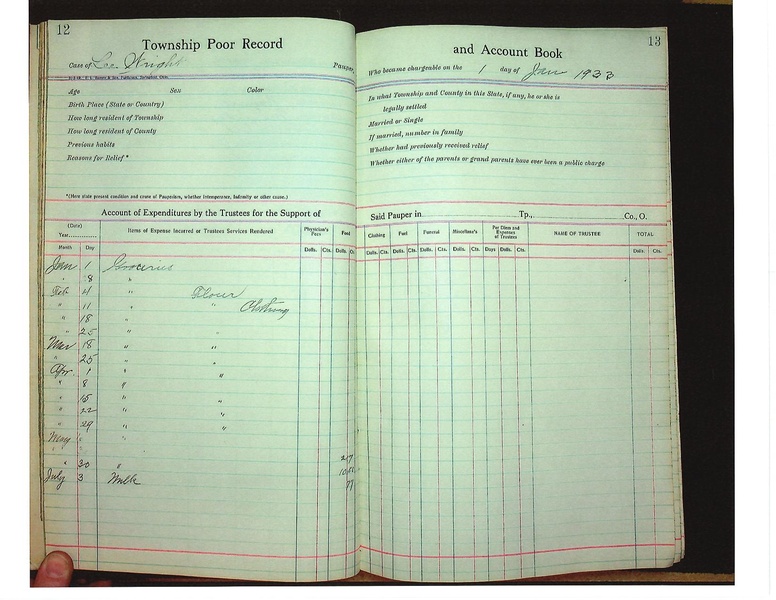 12
Township Poor Record
Case of Lee Wright Pauper,
Age Sex Color
Birth Place (State or Country)
How long resident of Township
How long resident of County
Previous habits
Reasons for Relief*
*(Here state present condition and cause of Pauperism, whether Intemperance, Indemnity or other cause.)
Account of Expenditures by the Trustees for the Support of
(Date) Items of Expense Incurred or Trustees Services Rendered Physician's Fees Food
Year
Month Day Dolls. Cts. Dolls.
Jan 1 Groceries
" 8 "
Feb 4 " Flour
" 11 " " Clothing
" 18 "
" 25 "
Mar 18 " "
" 25 " "
Apr 1 " "
" 8 "
" 15 " "
" 22 " "
" 29 " "
May " "
" 30 "
July 3 Milk
13
and Account Book
Who became chargeable on the 1 day of Jan 1933
In what Township and County in this State, if any, he or she is
legally settled
Married or Single
If married, number in family
Whether had previously received relief
Whether either of the parents or grand parents have ever been a public charge
Said Pauper in Tp., Co., O.
Clothing Fuel Funeral Miscellane's Per Diem and Expenses of Trustees NAME OF TRUSTEE TOTAL
Dolls. Cts. Dolls. Cts. Dolls. Cts. Dolls. Cts. Days Dolls. Cts. Dolls. Cts.